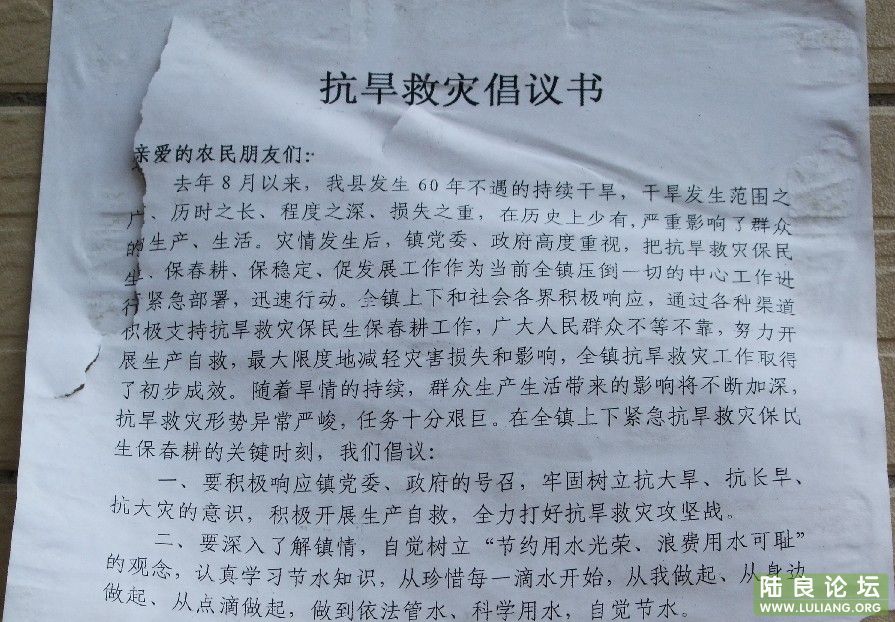 抗旱救灾倡议书
亲爱的农民朋友们：
去年8月以来，我县发生60年不遇的持续干旱，干旱发生范围之
广、历时之长、程度之深、损失之重，在历史上少有，严重影响了群众
的生产、生活。灾情发生后，镇党委、政府高度重视，把抗旱救灾保民
生、保春耕、保稳定、促发展工作作为当前全镇压倒一切的中心工作进
行紧急部署，迅速行动。全镇上下和社会各界积极响应，通过各种渠道
积极支持抗旱救灾保民生保春耕工作，广大人民群众不等不靠，努力开
展生产自救，最大限度地减轻灾害损失和影响，全镇抗旱救灾工作取得
了初步成效。随着旱情的持续，群众生产生活带来的影响将不断加深，
抗旱救灾形势异常严峻，任务十分艰巨。在全镇上下紧急抗旱救灾保民
生保春耕的关键时刻，我们倡议：
一、要积极响应镇党委、政府的号召，牢固树立抗大旱、抗长旱、
抗大灾的意识，积极开展生产自救，全力打好抗旱救灾攻坚战。
二、要深入了解镇情，自觉树立“节约用水光荣、浪费用水可耻”
的观念，认真学习节水知识，从珍惜每一滴水开始，从我做起、从身边
做起、从点滴做起，做到依法管水、科学用水，自觉节水。
陆良论坛
WWW.LULIANG.ORG